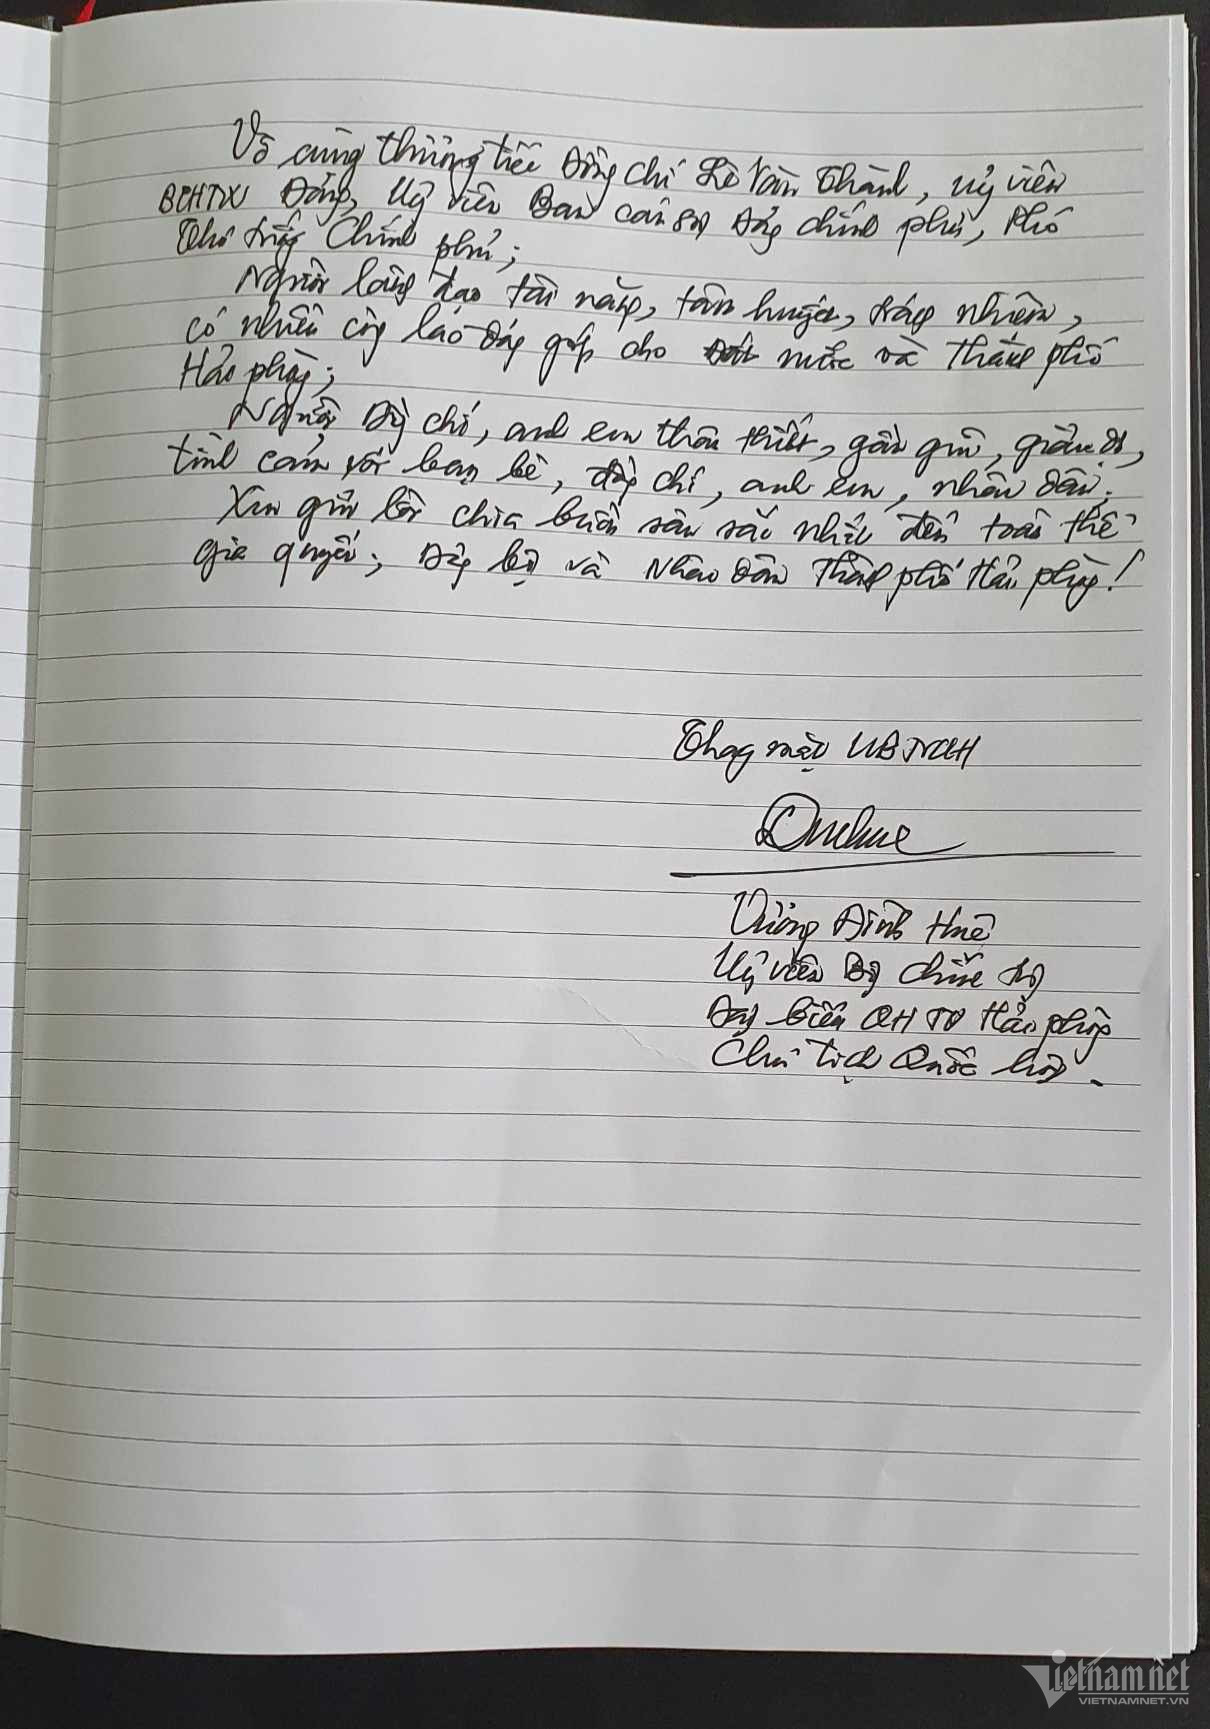 Vô cùng thương tiếc Đồng chí Lê Văn Thành, Uỷ viên
BCHTW Đảng, Uỷ viên Ban cán sự Đảng chính phủ, Phó
Thủ tướng Chính phủ;
Người lãnh đạo tài năng, tâm huyết, trách nhiệm,
có nhiều công lao đóng góp cho Đất nước và Thành phố
Hải phòng;
Người Đồng chí, anh em thân thiết, gần gũi, giản dị,
tình cảm với bạn bè, đồng chí, anh em, nhân dân;
Xin gửi lời chia buồn sâu sắc nhất đến toàn thể
gia quyến; Đảng bộ và Nhân Dân Thành phố Hải phòng!
Thay mặt UBTVQH
Vương Đình Huệ
Uỷ viên Bộ Chính trị
Đại biểu QH TP Hải phòng
Chủ tịch Quốc hội.
Vietnamnet
VIETNAMNET.VN